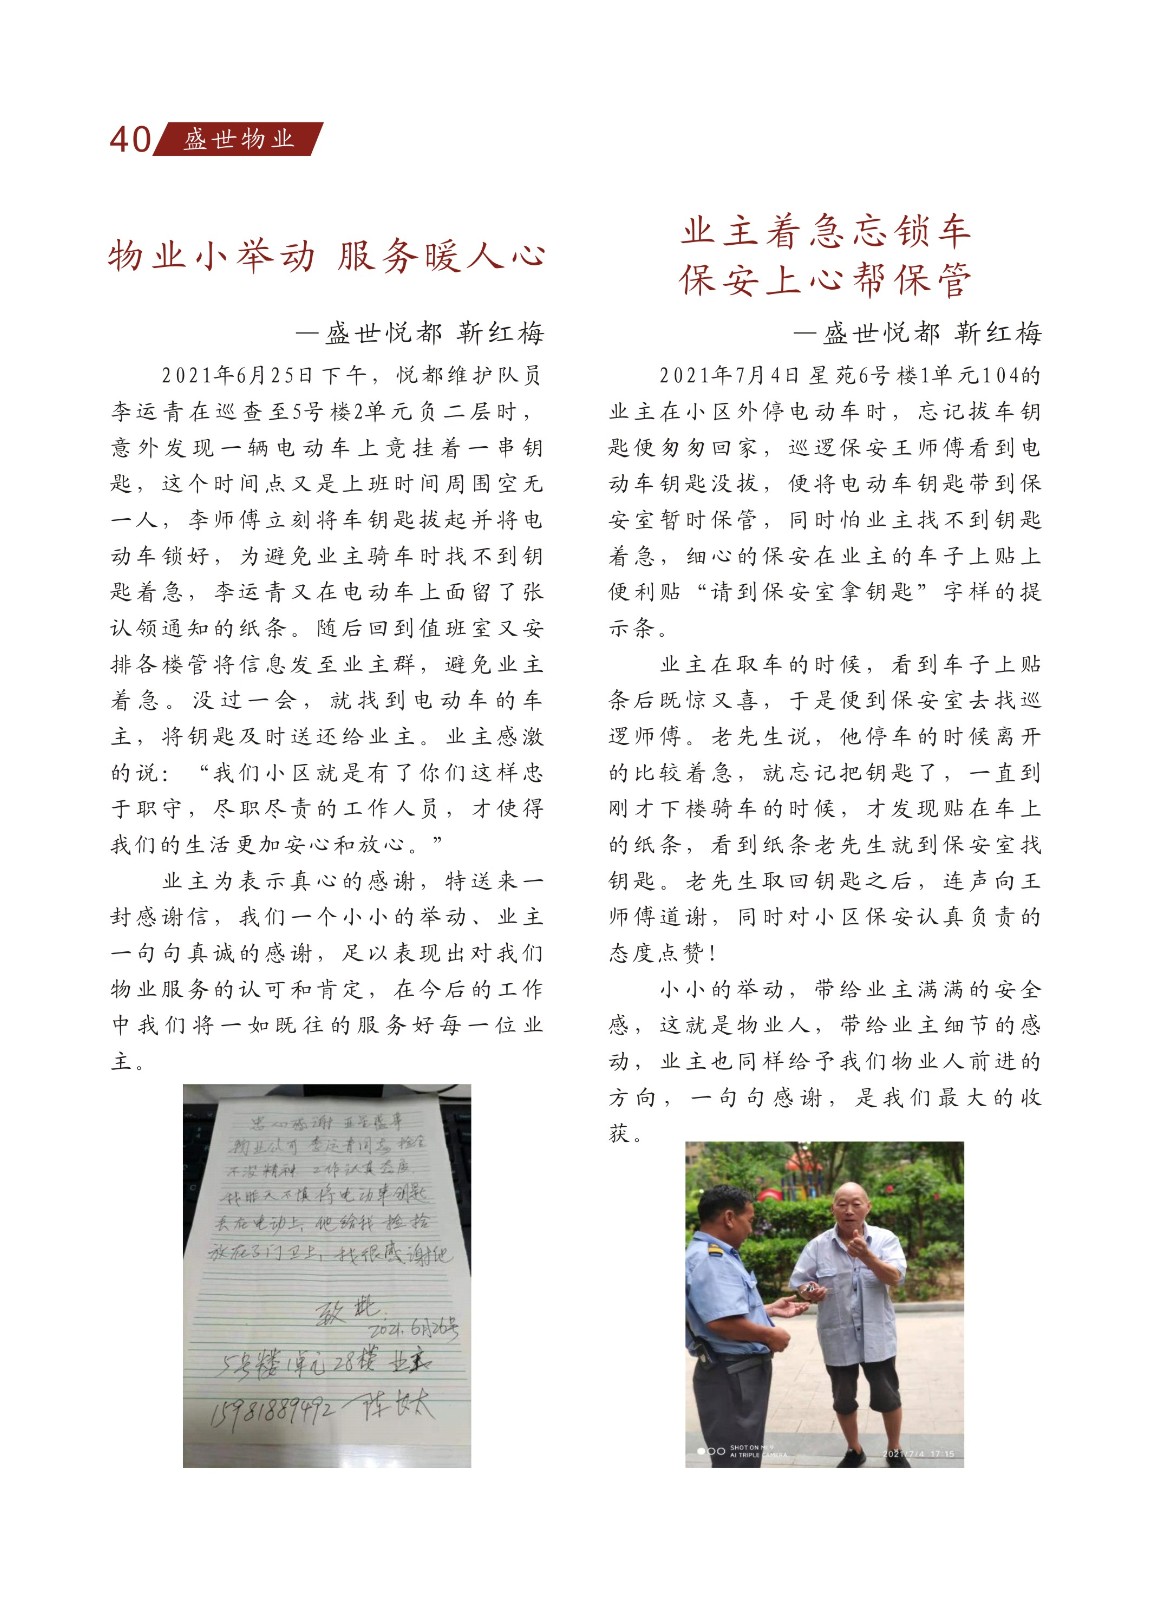 40 盛世物业
物业小举动 服务暖人心
—盛世悦都 靳红梅
2021年6月25日下午，悦都维护队员
李运青在巡查至5号楼2单元负二层时，
意外发现一辆电动车上竟挂着一串钥
匙，这个时间点又是上班时间周围空无
一人，李师傅立刻将车钥匙拔起并将电
动车锁好，为避免业主骑车时找不到钥
匙着急，李运青又在电动车上面留了张
认领通知的纸条。随后回到值班室又安
排各楼管将信息发至业主群，避免业主
着急。没过一会，就找到电动车的车
主，将钥匙及时送还给业主。业主感激
的说：“我们小区就是有了你们这样忠
于职守，尽职尽责的工作人员，才使得
我们的生活更加安心和放心。”
业主为表示真心的感谢，特送来一
封感谢信，我们一个小小的举动、业主
一句句真诚的感谢，足以表现出对我们
物业服务的认可和肯定，在今后的工作
中我们将一如既往的服务好每一位业
主。
物业公司 李运青同志 检金
不没精神 工作认真态度
我昨天不慎将电动车钥匙
丢在电动上，他给我 检拾
放在了门卫上，我很感谢他
致此
2021.6月26号
5号楼1单元28楼 业主
15981889492 陈长太
业主着急忘锁车
保安上心帮保管
—盛世悦都 靳红梅
2021年7月4日星苑6号楼1单元104的
业主在小区外停电动车时，忘记拔车钥
匙便匆匆回家，巡逻保安王师傅看到电
动车钥匙没拔，便将电动车钥匙带到保
安室暂时保管，同时怕业主找不到钥匙
着急，细心的保安在业主的车子上贴上
便利贴“请到保安室拿钥匙”字样的提
示条。
业主在取车的时候，看到车子上贴
条后既惊又喜，于是便到保安室去找巡
逻师傅。老先生说，他停车的时候离开
的比较着急，就忘记把钥匙了，一直到
刚才下楼骑车的时候，才发现贴在车上
的纸条，看到纸条老先生就到保安室找
钥匙。老先生取回钥匙之后，连声向王
师傅道谢，同时对小区保安认真负责的
态度点赞！
小小的举动，带给业主满满的安全
感，这就是物业人，带给业主细节的感
动，业主也同样给予我们物业人前进的
方向，一句句感谢，是我们最大的收
获。
SHOT ON
AI TRIPLE CAMERA
2021/7/4 17:15